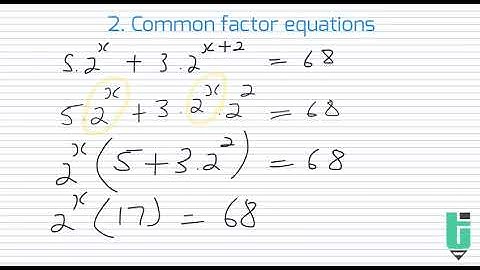 2. Common factor equations
5.2^x + 3.2^{x+2} = 68
5.2^x + 3.2^x.2^2 = 68
2^x(5+3.2^2) = 68
2^x(17) = 68